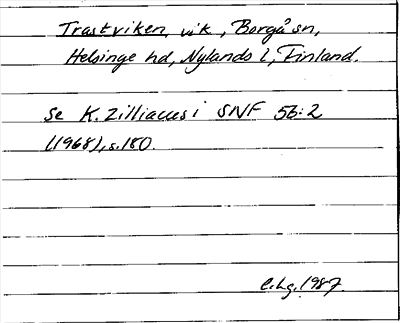 Trastviken, vik, Borgå sn,
Helsinge hd, Nylands l, Finland.
Se K. Zilliacus i SNF 56:2
(1968), s.180.
C.Lg. 1987.